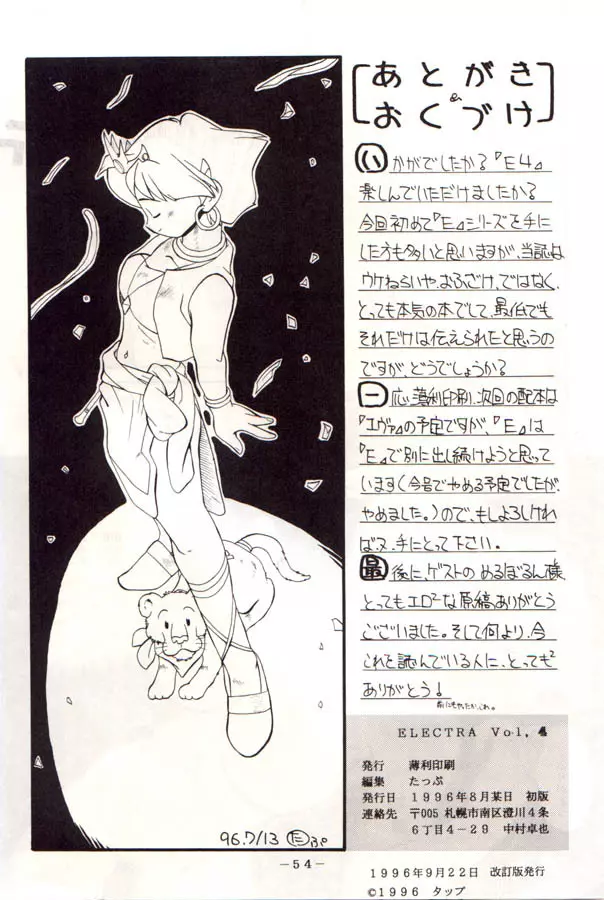 あとがき
&
おくづけ
いかがでしたか?『E4』
楽しんでいただけましたか?
今回初めて『E』シリーズを手に
した方も多いと思いますが、当誌は
ウケねらいや、おふざけ、ではなく、
とっても本気の本でして、最低でも
それだけは伝えられたと思うの
ですが、どうでしょうか?
一応、薄利印刷、次回の配本は
『エヴァ』の予定ですが、『E』は
『E』で別に出し続けようと思って
います(今号でやめる予定でしたが、
やめました。)ので、もしよろしけれ
ばヌ、手にとって下さい。
最後に、ゲストの めるぼるん様、
とってもエロ2な原稿、ありがとう
ございました。そして何より、今
これを読んでいる人に、とっても2
ありがとう!
前にもやったか、これ。
ELECTRA Vol, 4
発行 薄利印刷
編集 たっぷ
発行日 1996年8月某日 初版
連絡先 〒005 札幌市南区澄川4条
6丁目4－29 中村卓也
96.7/13 たっぷ
－54－
1996年9月22日 改訂版発行
©1996 タップ